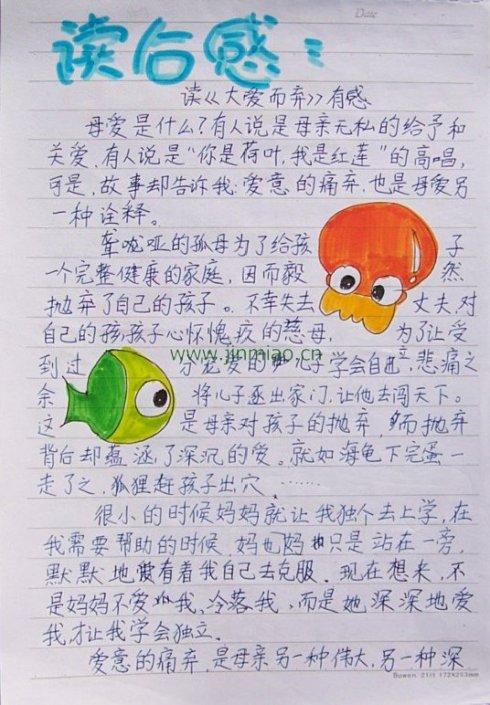 Date
读后感：
读《大爱而弃》有感
母爱是什么？有人说是母亲无私的给予和
关爱，有人说是“你是荷叶，我是红莲”的高唱，
可是，故事却告诉我：爱意的痛弃，也是母爱另
一种诠释。
聋哑的孤母为了给孩子
一个完整健康的家庭，因而毅然
抛弃了自己的孩子。不幸失去丈夫，对
自己的孩孩子心怀愧疚的慈母，为了让受
www.jinmiao.cn
到过分宠爱的儿子学会自立，悲痛之
余将儿子逐出家门，让他去闯天下。
这是母亲对孩子的抛弃，而抛弃
背后却蕴涵了深沉的爱。就如海龟下完蛋一
走了之，狐狸赶孩子出穴……
很小的时候妈妈就让我独个去上学，在
我需要帮助的时候，妈也妈只是站在一旁，
默默地看着我自己去克服。现在想来，不
是妈妈不爱我，冷落我，而是她深深地爱
我，才让我学会独立。
爱意的痛弃，是母亲另一种伟大，另一种深
Bowen 21H 172X253mm